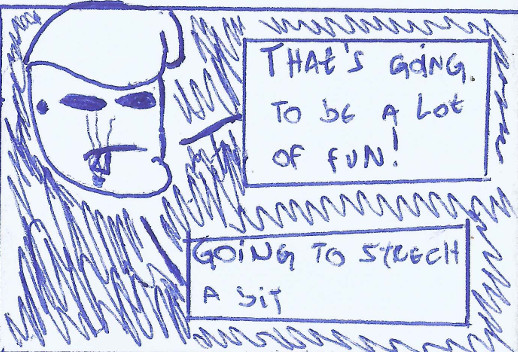 THAt'S GOING
TO bE A LOt
OF FUN!
GOING TO STRECH
A bIT